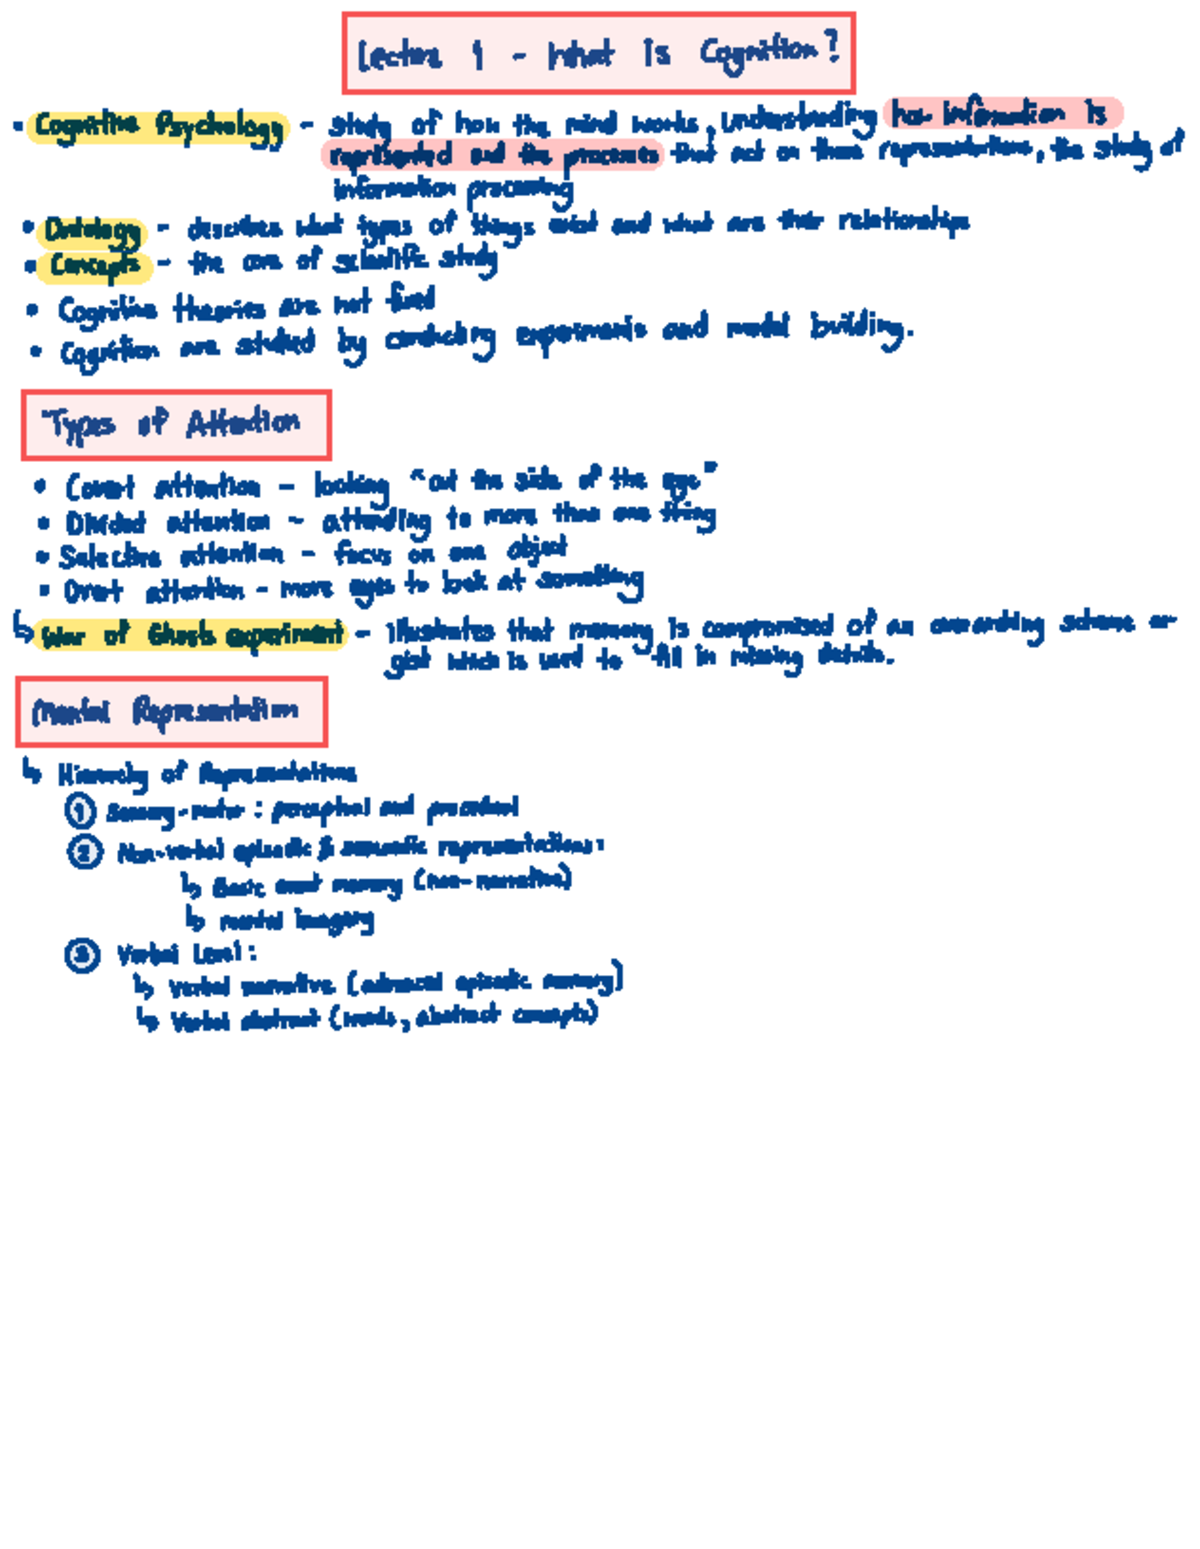 Lecture 1 - What is Cognition?
• Cognitive Psychology - study of how the mind works, understanding how information is
represented and the processes that act on these representations, the study of
information processing
• Ontology - describes what types of things exist and what are their relationships
• Concepts - the core of scientific study
• Cognitive theories are not fixed
• Cognition are studied by conducting experiments and model building.
Types of Attention
• Covert attention - looking "out the side of the eye"
• Divided attention - attending to more than one thing
• Selective attention - focus on one object
• Overt attention - move eyes to look at something
↳ War of Ghosts experiment - illustrates that memory is compromised of an overarching scheme or
gist which is used to fill in missing details.
Mental Representation
↳ Hierarchy of Representations
① Sensory-motor : perceptual and procedural
② Non-verbal episodic & semantic representations:
↳ Basic event memory (non-narrative)
↳ mental imagery
③ Verbal Level:
↳ Verbal narrative (advanced episodic memory)
↳ Verbal abstract (words, abstract concepts)